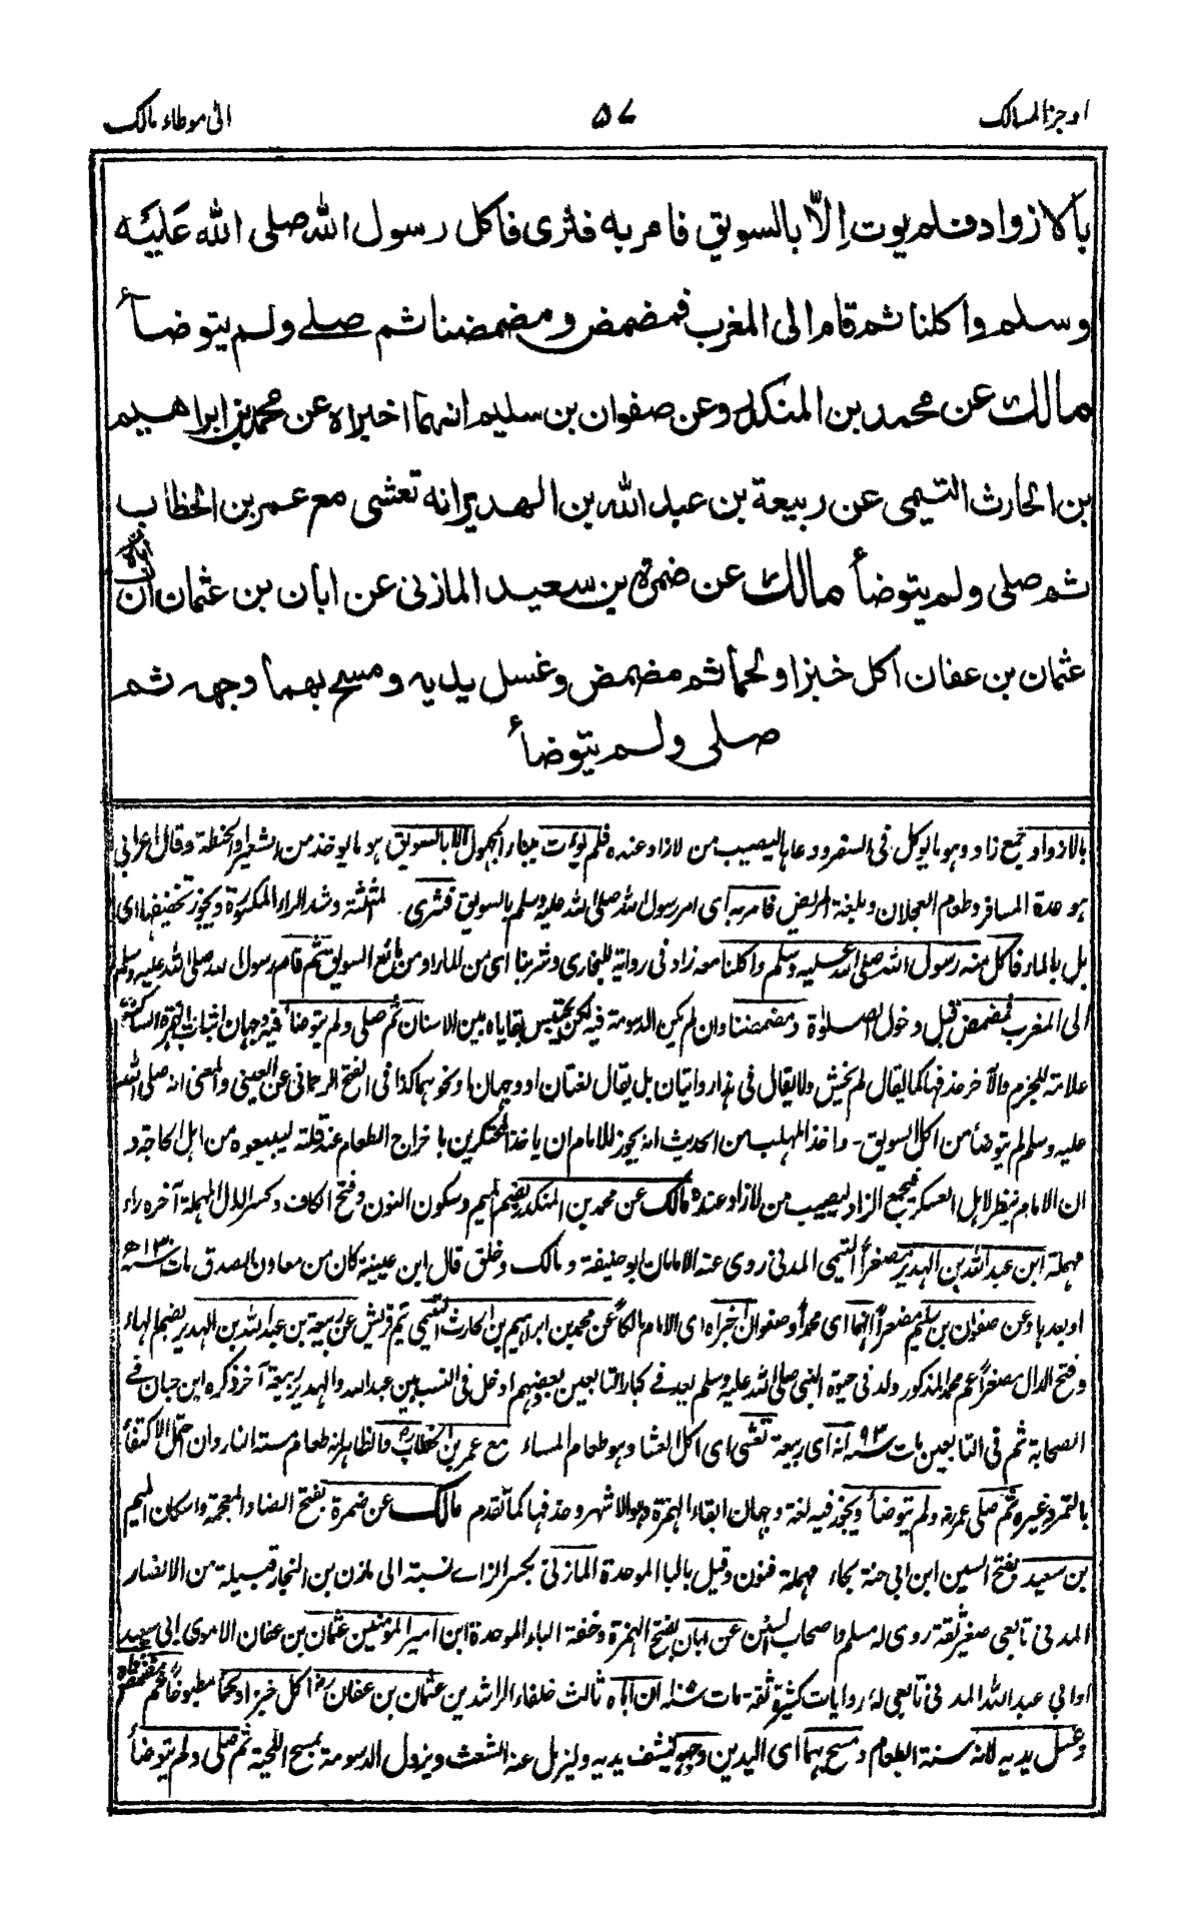 اوجز المسالك ۵۷ الى موطاء مالك
بالازواد فلم يوت اِلّا بالسويق فامر به فثرى فاكل رسول الله صلى الله عَليَه
وسلم واكلنا ثم قام الى المغرب فمضمض ومضمضنا ثم صلے ولم يتوضأ
مالك عن محمد بن المنكدر وعن صفوان بن سليم انهما اخبراه عن محمد بن ابراهيم
بن الحارث التيمى عن ربيعة بن عبد الله بن الهدير انه تعشى مع عمر بن الخطاب
ثم صلى ولم يتوضأ مالك عن ضمرة بن سعيد المازنى عن ابان بن عثمان ان اباه
عثمان بن عفان اكل خبزا ولحما ثم مضمض وغسل يديه ومسح بهما وجهه ثم
صلى ولم يتوضأ
بالازواد جمع زاد وهو ما يوكل فى السفر ودعا بها ليصيب من لا زاد عنده فلم يوت ببناء المجهول الا بالسويق هو ما يوخذ من الشعير والحنطة وقال اعرابى
هو عدة المسافر وطعام العجلان وبلغة المريض فامر به اى امر رسول الله صلى الله عليه وسلم بالسويق فثرى بمثلثة وشد الراء المكسورة ويجوز تخفيفها اى
بل بالماء فاكل منه رسول الله صلى الله عليه وسلم واكلنا معه زاد فى رواية للبخارى وشربنا اى من الماء او من مائع السويق ثم قام رسول الله صلى الله عليه وسلم
الى المغرب فمضمض قبل دخول الصلوٰة ومضمضنا وان لم يكن الدسومة فيه لكن يحتبس بقاياه بين الاسنان ثم صلى ولم يتوضأ فيه وجهان اثبات الهمزة الساكنة
علامة للجزم والآخر حذفها كما يقال لم يخش ولا يقال فى هذا روايتان بل يقال لغتان او وجهان او نحوهما كذا فى الفتح الرحمانى عن العينى والمعنى انه صلى الله
عليه وسلم لم يتوضأ من اكل السويق - واخذ المهلب من الحديث انه يجوز للامام ان ياخذ المحتكرين باخراج الطعام عند قلته ليبيعوه من اهل الحاجة و
ان الامام ينظر لاهل العسكر فيجمع الزاد ليصيب من لا زاد عنده مالك عن محمد بن المنكدر بضم الميم وسكون النون وفتح الكاف وكسر الدال المهملة آخره راء
مهملة ابن عبد الله بن الهدير مصغراً التيمى المدنى روى عنه الامامان ابو حنيفة ومالك وخلق قال ابن عيينة كان من معادن الصدق مات سنه ١٣٠ھ
او بعدها وعن صفوان بن سليم مصغراً انهما اى محمداً وصفوان اخبراه اى الامام مالكاً عن محمد بن ابراهيم بن الحارث التيمى تيم قريش عن ربيعة بن عبد الله بن الهدير بضم الهاء
وفتح الدال مصغراً عم محمد المذكور ولد فى حيوة النبى صلى الله عليه وسلم يعد فے كبار التابعين بعضهم ادخل فى النسب بين عبد الله والهدير ربيعة آخر ذكره ابن حبان فے
الصحابة ثم فى التابعين مات سنه ٩٣ انه اى ربيعة تعشى اى اكل العشاء وهو طعام المساء مع عمر بن الخطاب والظاهر انه طعام مسته النار وان احتمل الاكتفاء
بالتمر وغيره ثم صلى عمر ولم يتوضأ ويجوز فيه لغة وجهان ابقاء الهمزة وهو الاشهر وحذفها كما تقدم مالك عن ضمرة بفتح الضاد المعجمة واسكان الميم
بن سعيد بفتح السين ابن ابى حنة بحاء مهملة فنون وقيل بالباء الموحدة المازنى بكسر الزاے نسبة الى مازن بن النجار قبيلة من الانصار
المدنى تابعى صغير ثقة روى له مسلم واصحاب السنن عن ابان بفتح الهمزة وخفة الباء الموحدة ابن امير المؤمنين عثمان بن عفان الاموى ابى سعيد
او ابى عبد الله المدنى تابعى له روايات كثيرة ثقة مات ان اباه ثالث خلفاء الراشدين عثمان بن عفان اكل خبزا ولحما مطبوخا ثم مضمض فاه
وغسل يديه لانه سنة الطعام ومسح بهما اى اليدين وجهه لينشف يديه وليزيل عنه الشعث ويزول الدسومة بمسح اللحية ثم صلى ولم يتوضأ